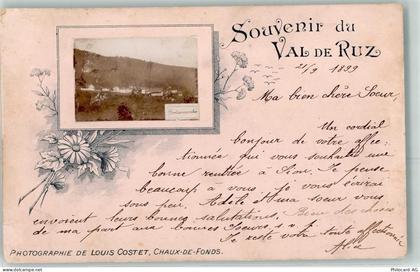 Souvenir du
Val de Ruz
21/9 1899
Ma bien chère Soeur,
Un cordial
bonjour de votre affec-
tionnée qui vous souhaite une
bonne rentrée à Sion. Je pense
beaucoup à vous, je vous écrirai
sous peu. Adèle et ma soeur vous
envoient leurs bonnes salutations. Bien des choses
de ma part aux bonnes Soeurs
Je reste votre toute affectionnée
Alice
Photographie de Louis Costet, Chaux-de-Fonds.